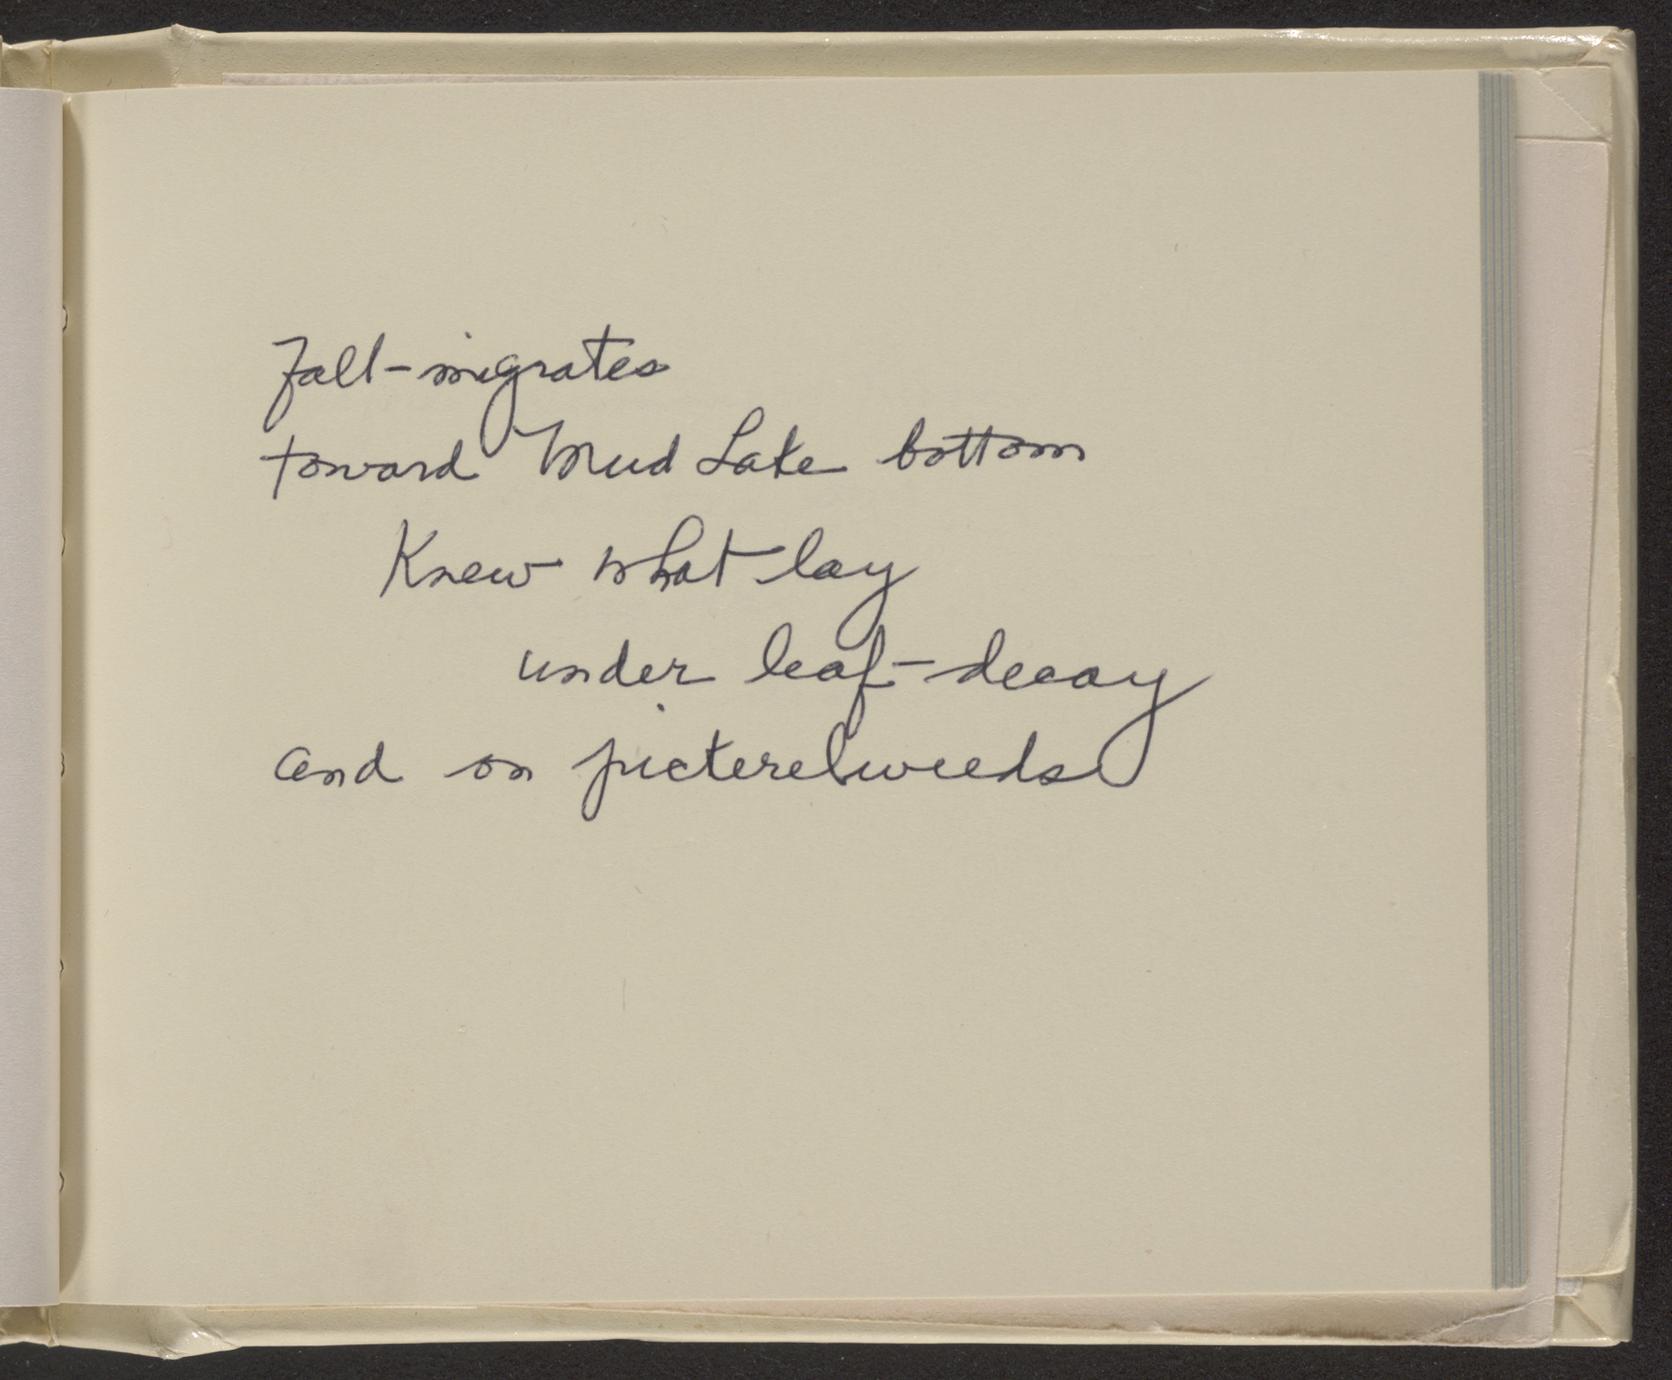 Fall-migrates
toward Mud Lake bottom
Knew what lay
under leaf-decay
and on pickerelweeds